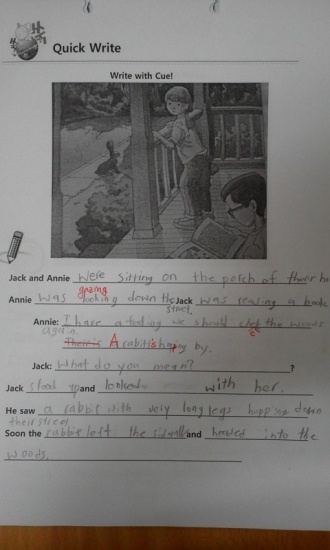 Quick Write
Write with Cue!
Jack and Annie were sitting on the porch of their
Annie was gazing looking down the Jack was reading a book
street.
Annie: I have a feeling we should the woods
again.
There's A rabbit is hopping by.
Jack: What do you mean? ?
Jack stood up and looked with her.
He saw a rabbit with very long legs hopping down
their street
Soon the rabbit left the sidewalk and headed into the
woods.